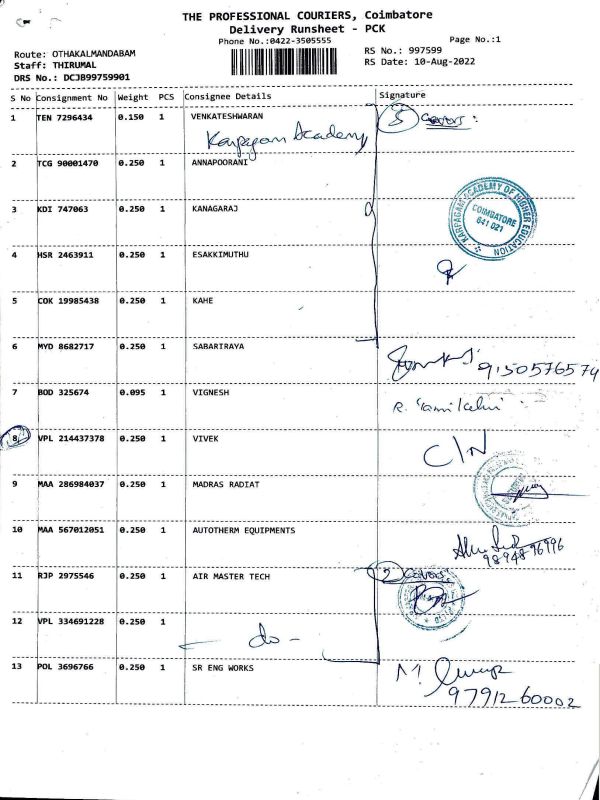 THE PROFESSIONAL COURIERS, Coimbatore
Delivery Runsheet - PCK
Phone No.:0422-3505555
Page No.:1
Route: OTHAKALMANDABAM
Staff: THIRUMAL
DRS No.: DCJB99759901
RS No.: 997599
RS Date: 10-Aug-2022
S No Consignment No Weight PCS Consignee Details Signature
1 TEN 7296434 0.150 1 VENKATESHWARAN 5 Covers:
Karpagam Academy
2 TCG 90001470 0.250 1 ANNAPOORANI
3 KDI 747063 0.250 1 KANAGARAJ
KARPAGAM ACADEMY OF HIGHER EDUCATION
COIMBATORE
641 021
4 HSR 2463911 0.250 1 ESAKKIMUTHU
5 COK 19985438 0.250 1 KAHE
6 MYD 8682717 0.250 1 SABARIRAYA
9150576574
7 BOD 325674 0.095 1 VIGNESH
R. Tamilselvi
8 VPL 214437378 0.250 1 VIVEK C/N
9 MAA 286984037 0.250 1 MADRAS RADIAT
10 MAA 567012051 0.250 1 AUTOTHERM EQUIPMENTS
9894896996
11 RJP 2975546 0.250 1 AIR MASTER TECH 2 Covers:
12 VPL 334691228 0.250 1
- do -
13 POL 3696766 0.250 1 SR ENG WORKS
9791260002